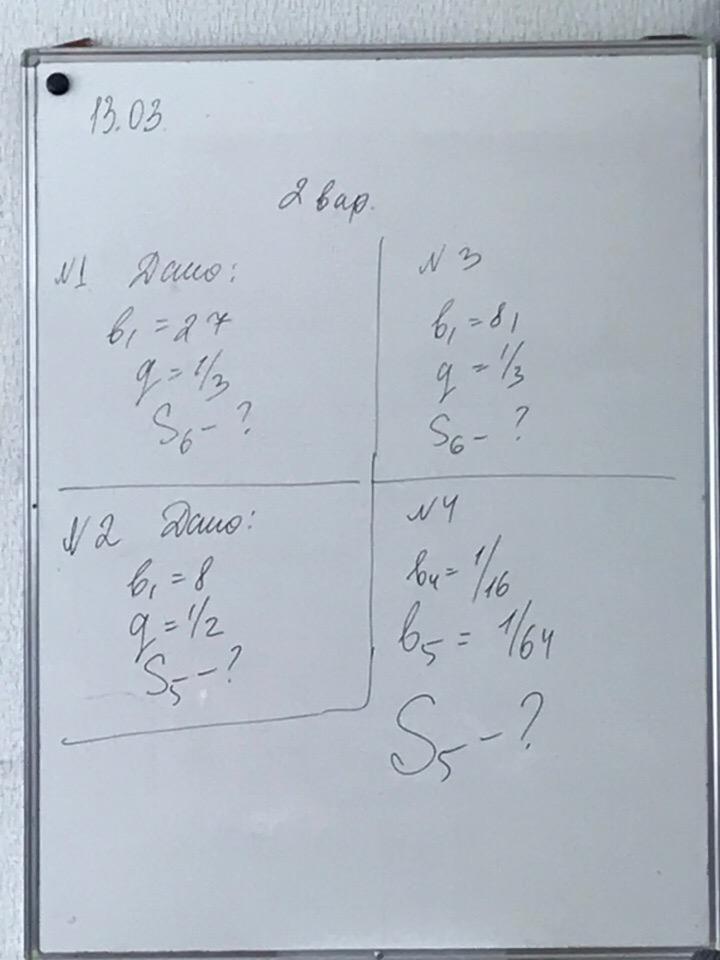 13.03
2 вар.
№1 Дано:
b₁ = 27
q = 1/3
S₆ - ?
№2 Дано:
b₁ = 8
q = 1/2
S₅ - ?
№3
b₁ = 81
q = 1/3
S₆ - ?
№4
b₄ = 1/16
b₅ = 1/64
S₅ - ?